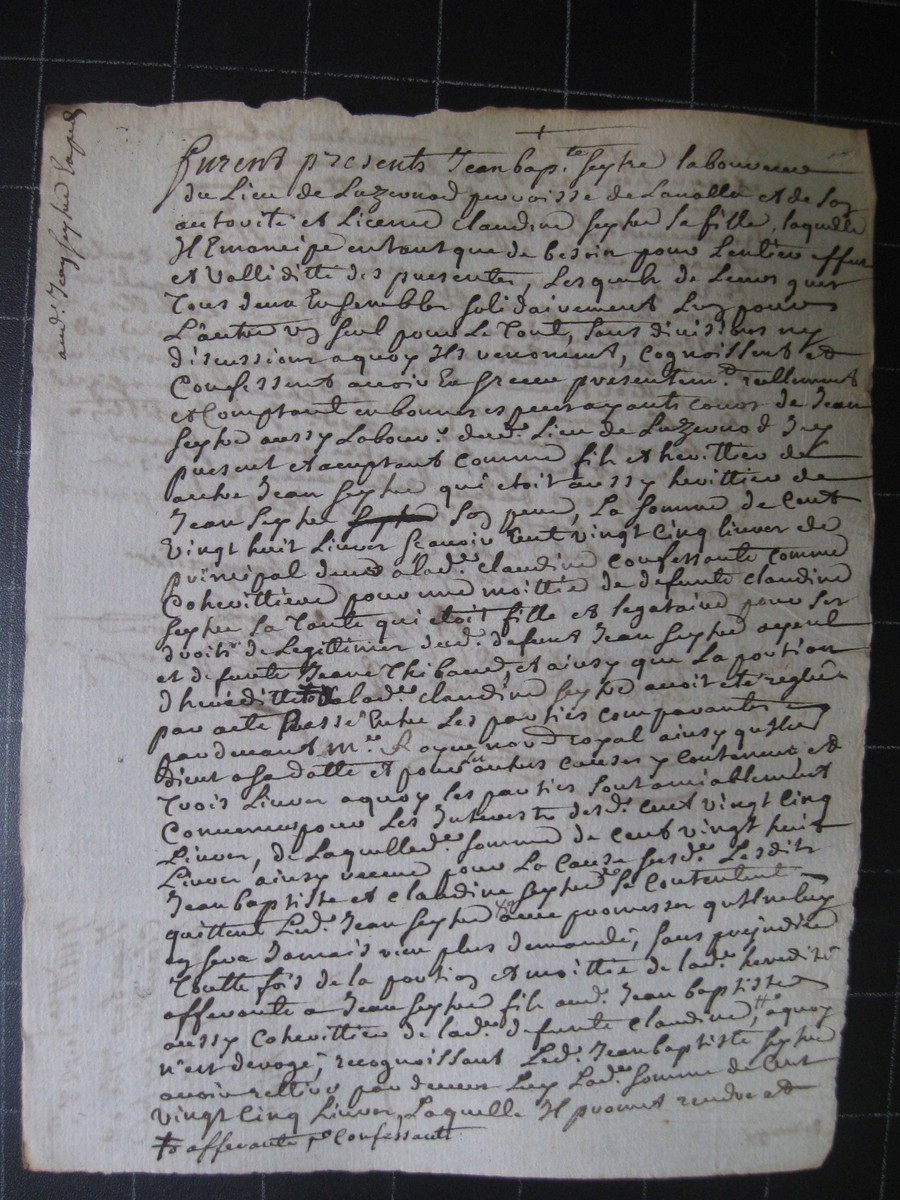 aud. Jean Seytre
furent presents Jean bap.te Seytre laboureur
du Lieu de Luzernod perroisse de Lavalla et de Son
autorité et Licence Claudine Seytre Sa fille, laquelle
Il Emancipe entantque de besoin pour Lentier effect
et valliditté des presentes, Lesquels de Leurs gréz
Tous deux Ensembles solidairement Lun pour
L'autre un seul pour Le Tout, sans divisions ny
discussions aquoy Ils renoncent, Cognoissent et
Confessent avoir En receu presentem.t reellement
et Comptant en bonnes especes ayants cours de Jean
Seytre aussy Labour.r dud. Lieu de Luzernod Icy
present et acceptant comme fils et herittier de
autre Jean Seytre qui etoit aussy herittier de
Jean Seytre Son pere, La somme de Cent
vingt huit Livres scavoir Cent vingt Cinq Livres de
principal deues alad.e Claudine Confessante comme
Coherittiere pour une moittié de defunte Claudine
Seytre Sa Tante qui etoit fille et legataire pour ses
droits de Legittimes dud. defunt Jean Seytre ayeul
et defunte Jeane Thibaud, et ainsy que La portion
d'hereditté alad.e Claudine Seytre avoit eté reglée
par acte Passé Entre Les parties comparantes
pardevant M.re royal ainsy qu'Ils
dient a Sa datte et pour autres causes y contenues et
Trois Livres aquoy les parties Sont amiablement
Convenues pour Les Interests desd. Cent vingt Cinq
Livres, de Laquelle d.e somme de Cent vingt huit
Livres ainsy receue pour La Cause Susd.e Lesdits
Jean baptiste et Claudine Seytre Se Contentent
quittent Led. Jean Seytre avec promesses qu'Il ne luy
en Sera Jamais rien plus demandé, Sans prejudice
Toutte fois de la portion et moittié de lad.e heredité
afferante a Jean Seytre fils aud. Jean baptiste
aussy Coherittier de lad.e defunte Claudine, aquoy
n'est derogé, recognoissant Led. Jean baptiste Seytre
avoir retiré pardevers Luy Lad.e Somme de Cent
vingt Cinq Livres, Laquelle Il promet rendre et
afferante a Confessante